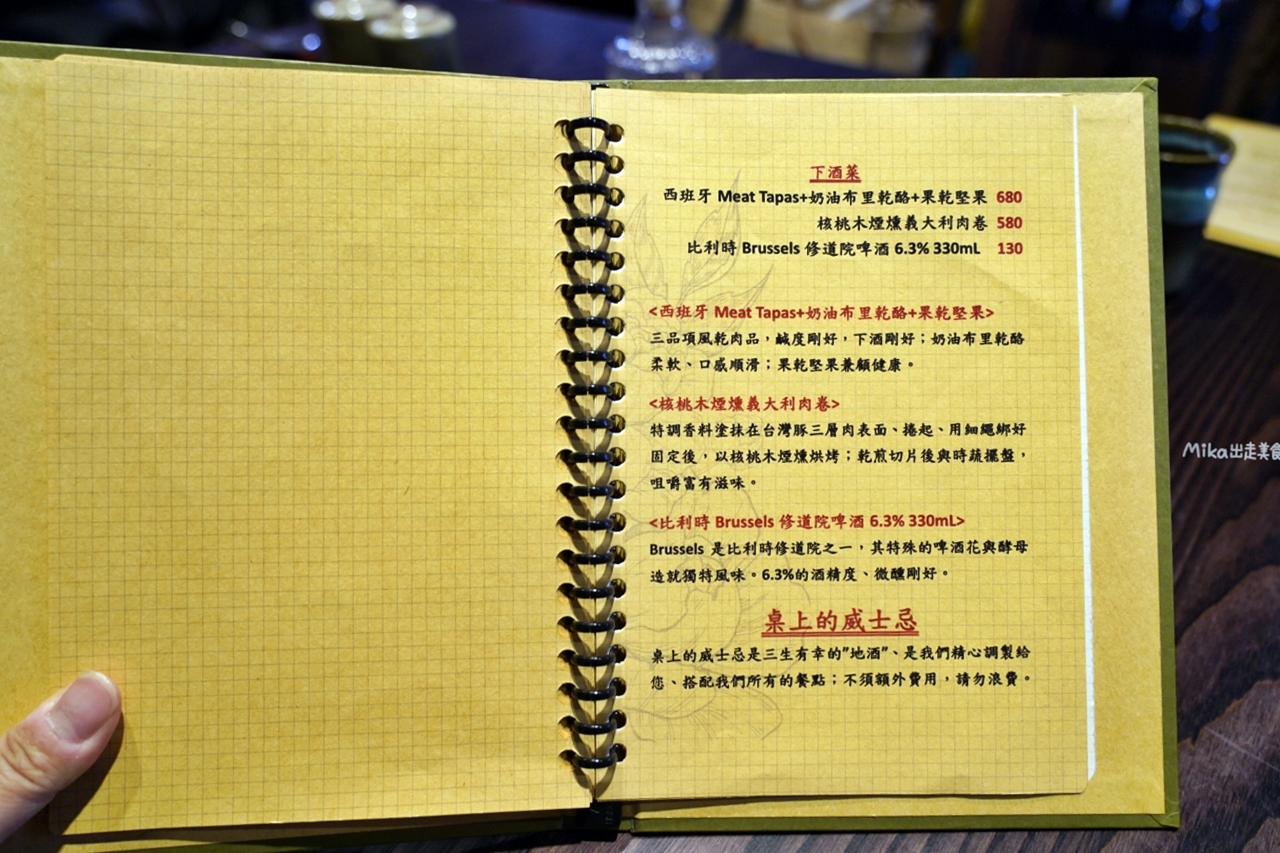 下酒菜
西班牙 Meat Tapas+奶油布里乾酪+果乾堅果 680
核桃木煙燻義大利肉卷 580
比利時 Brussels 修道院啤酒 6.3% 330mL 130
<西班牙 Meat Tapas+奶油布里乾酪+果乾堅果>
三品項風乾肉品，鹹度剛好，下酒剛好；奶油布里乾酪
柔軟、口感順滑；果乾堅果兼顧健康。
<核桃木煙燻義大利肉卷>
特調香料塗抹在台灣豚三層肉表面、捲起、用細繩綁好
固定後，以核桃木煙燻烘烤；乾煎切片後與時蔬擺盤，
咀嚼富有滋味。
<比利時 Brussels 修道院啤酒 6.3% 330mL>
Brussels 是比利時修道院之一，其特殊的啤酒花與酵母
造就獨特風味。6.3%的酒精度、微醺剛好。
桌上的威士忌
桌上的威士忌是三生有幸的"地酒"、是我們精心調製給
您、搭配我們所有的餐點；不須額外費用，請勿浪費。
Mika出走美食